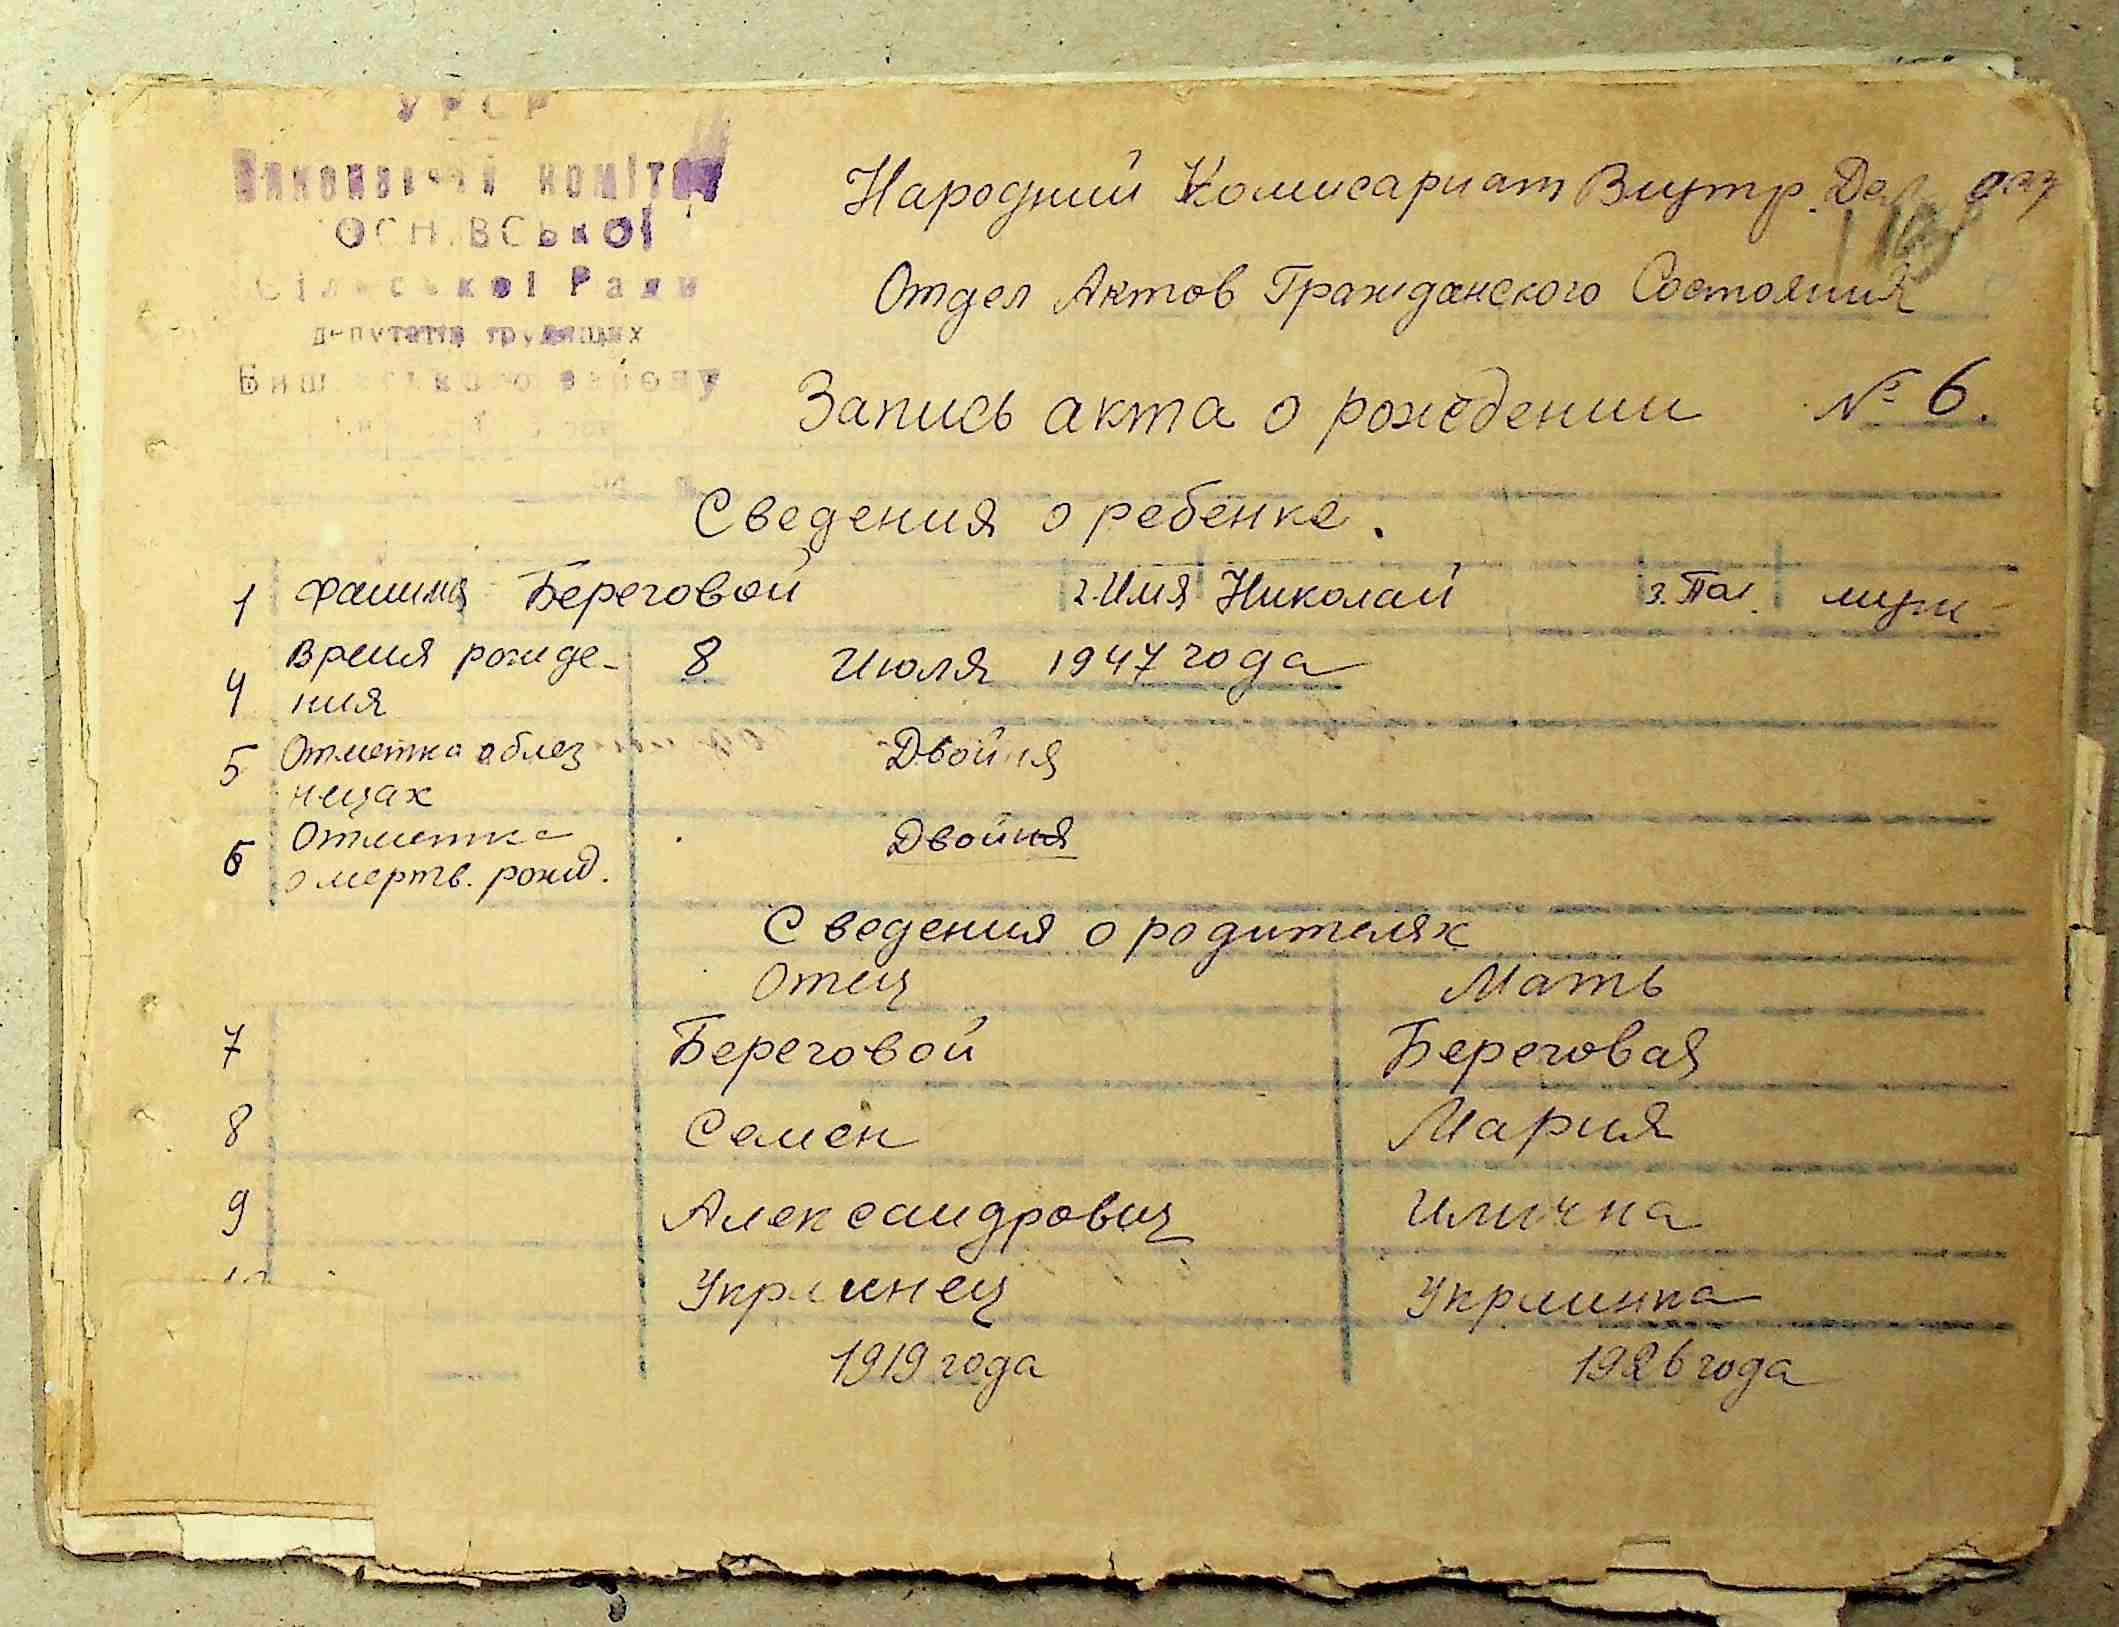 УРСР
Виконавчий комітет
Сільської Ради
депутатів трудящих
району
Народний Комисариат Внутр. Дел
Отдел Актов Гражданского Состояния
Запись акта о рождении № 6.
Сведения о ребенке.
1 Фамилия Береговой 2. Имя Николай 3. Пол. муж
4 Время рожде-
ния 8 Июля 1947 года
5 Отметка о близ
нецах Двойня
6 Отметка
о мертв. рожд. Двойня
Сведения о родителях
Отец Мать
7 Береговой Береговая
8 Семен Мария
9 Александрович Илична
10 Украинец Украинка
1919 года 1926 года